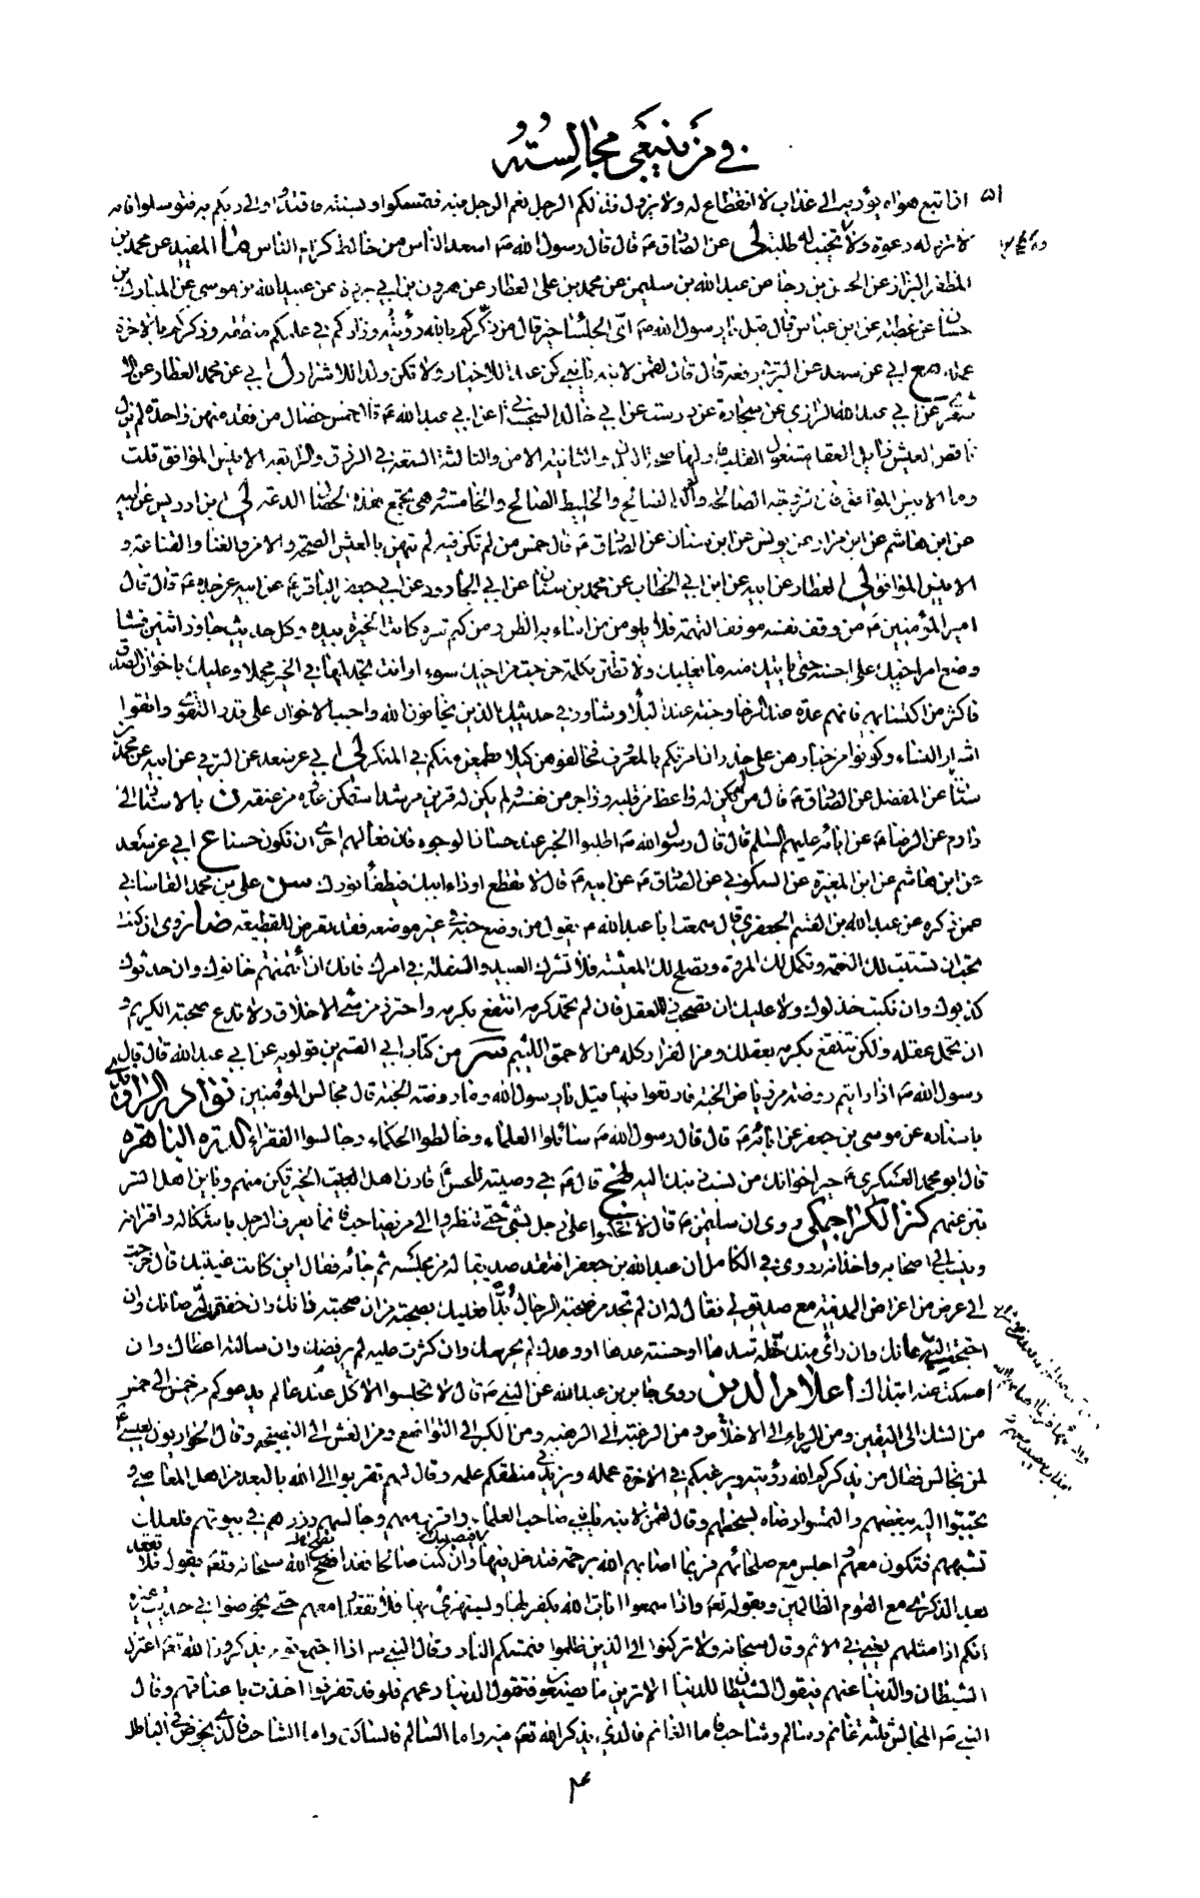 في من ينبغي مجالسته
۵۱
اذا تبع هواه يؤديه الى عذاب لا انقطاع له ولا يزول فذلكم الرجل نعم الرجل فبه فتمسكوا وبسنته فاقتدوا والى ربكم به فتوسلوا فانه
لا ترد له دعوة ولا تخيب له طلبة لى عن الصادق ع قال قال رسول الله ص اسعد الناس من خالط كرام الناس ما المفيد عن محمد بن
المظفر البزاز عن الحسن بن رجا عن عبد الله بن سليمن عن محمد بن على العطار عن هرون بن ابي بردة عن عبيد الله بن موسى عن المبارك بن
حسان عن عطية عن ابن عباس قال قيل يا رسول الله ص اى الجلساء خير قال من ذكركم بالله رؤيته وزادكم في علمكم منطقه وذكركم بالاخرة
عمله مع ابي عن سعد عن البرقي رفعه قال قال لقمن لابنه يا بني كن عبدا للاخيار ولا تكن ولدا للاشرار ل ابي عن محمد العطار عن
الاشعرى عن ابي عبد الله الرازي عن سجادة عن درست عن ابي خالد السجستاني عن ابي عبد الله ع قال خمس خصال من فقد منهن واحدة لم يزل
ناقص العيش زايل العقل مشغول القلب فاولها صحة البدن والثانية الامن والثالثة السعة في الرزق والرابعة الانيس الموافق قلت
وما الانيس الموافق قال الزوجة الصالحة والولد الصالح والخليط الصالح والخامسة وهي تجمع هذه الخصال الدعة لى ابن ادريس عن ابيه
عن ابن هاشم عن ابن مرار عن يونس عن ابن سنان عن الصادق ع قال خمس من لم تكن فيه لم يتهن بالعيش الصحة والامن والغنا والقناعة و
الانيس الموافق لى العطار عن ابيه عن ابن ابي الخطاب عن محمد بن سنان عن ابي الجارود عن ابي جعفر الباقر ع عن ابيه عن جده ع قال قال
امير المؤمنين ع من وقف نفسه موقف التهمة فلا يلومن من اساء به الظن ومن كتم سره كانت الخيرة بيده وكل حديث جاوز اثنين فشا
وضع امر اخيك على احسنه حتى ياتيك منه ما يغلبك ولا تظنن بكلمة خرجت من اخيك سوء او انت تجد لها في الخير محملا وعليك باخوان الصدق
فاكثر من اكتسابهم فانهم عدة عند الرخا وجنة عند البلاء وشاور في حديثك الذين يخافون الله واحبب الاخوان على قدر التقوى واتقوا
اشرار النساء وكونوا من خيارهن على حذر ان امرنكم بالمعروف فخالفوهن كيلا يطمعن منكم في المنكر لى ابي عن سعد عن البرقي عن ابيه عن محمد بن
سنان عن المفضل عن الصادق ع قال من لم يكن له واعظ من قلبه وزاجر من نفسه ولم يكن له قرين مرشد استمكن عدوه من عنقه ن بالاسانيد الى
دارم عن الرضا ع عن ابائه عليهم السلم قال قال رسول الله ص اطلبوا الخير عند حسان الوجوه فان فعالهم احرى ان تكون حسنا ع ابي عن سعد
عن ابن هاشم عن ابن المغيرة عن السكوني عن الصادق ع عن ابيه ع قال لا تقطع اوداء ابيك فيطفأ نورك سن على بن محمد القاساني
عمن ذكره عن عبد الله بن القسم الجعفري قال سمعت ابا عبد الله ع يقول من وضع حبه في غير موضعه فقد تعرض للقطيعة ضا روى ان كنت
تحب ان تستتب لك النعمة وتكمل لك المروة وتصلح لك المعيشة فلا تشرك العبيد والسفلة في امرك فانك ان ائتمنتهم خانوك وان حدثوك
كذبوك وان نكبت خذلوك ولا عليك ان تصحب ذا العقل فان لم تحمد كرمه انتفع بعقله واحترز من سيء الاخلاق ولا تدع صحبة الكريم و
ان لم تحمد عقله ولكن تنتفع بكرمه بعقلك وفر الفرار كله من الاحمق اللئيم سر من كتاب ابي القسم بن قولويه عن ابي عبد الله قال قال
رسول الله ص اذا رايتم روضة من رياض الجنة فارتعوا فيها قيل يا رسول الله وما روضة الجنة قال مجالس المؤمنين نوادر الراوندي
باسناده عن موسى بن جعفر عن ابائه ع قال قال رسول الله ص سائلوا العلماء وخالطوا الحكماء وجالسوا الفقراء الدرة الباهرة
قال ابو محمد العسكري ع خير اخوانك من نسي ذنبك اليه نهج قال ع في وصيته للحسن قارن اهل الخير تكن منهم وباين اهل الشر
تبن عنهم كنز الكراجكي روى ان سليمن ع قال لا تحكموا على رجل بشيء حتى تنظروا الى من يصاحب فانما يعرف الرجل باشكاله واقرانه
وينسب الى اصحابه واخدانه وروى في الكامل ان عبد الله بن جعفر افتقد صديقا له من مجلسه ثم جائه فقال اين كانت غيبتك قال خرجت
الى عرض من اعراض المدينة مع صديق لي فقال له ان لم تجد من صحبة الرجال بدا فعليك بصحبة من ان صحبته زانك وان خففت له صانك وان
احتجت اليه مانك وان رأى منك خلة سدها او حسنة عدها او وعدك لم يجرضك وان كثرت عليه لم يرفضك وان سالته اعطاك وان
امسكت عنه ابتداك اعلام الدين روى جابر بن عبد الله عن النبي ص قال لا تجلسوا الا كل عند عالم يدعوكم من خمس الى خمس
من الشك الى اليقين ومن الرياء الى الاخلاص ومن الرغبة الى الرهبة ومن الكبر الى التواضع ومن الغش الى النصيحة وقال الحواريون لعيسى ع
لمن نجالس فقال من يذكركم الله رؤيته ويرغبكم في الاخرة عمله ويزيد في منطقكم علمه وقال لهم تقربوا الى الله بالبعد من اهل المعاصي و
تحببوا اليه ببغضهم والتمسوا رضاه بسخطهم وقال لقمن لابنه يا بني صاحب العلماء واقرب منهم وجالسهم وزرهم في بيوتهم فلعلك
تشبههم فتكون معهم اجلس مع صلحائهم فربما اصابهم الله برحمة فتدخل فيها وان كنت صالحا فقد نصح الله سبحانه وتع بقوله فلا تقعد
بعد الذكرى مع القوم الظالمين وبقوله تع واذا سمعوا ايات الله يكفر بها ويستهزئ بها فلا تقعدوا معهم حتى يخوضوا في حديث غيره
انكم اذا مثلهم يعني في الاثم وقال سبحانه ولا تركنوا الى الذين ظلموا فتمسكم النار وقال النبي ص اذا اجتمع قوم يذكرون الله تع اعتزل
الشيطان والدنيا عنهم فيقول الشيطان للدنيا الا ترين ما يصنعون فتقول الدنيا دعهم فلو قد تفرقوا اخذت باعناقهم وقال
النبي ص المجالس ثلثة غانم وسالم وشاحب فاما الغانم فالذي يذكر الله تع فيه واما السالم فالساكت واما الشاحب فالذي يخوض في الباطل